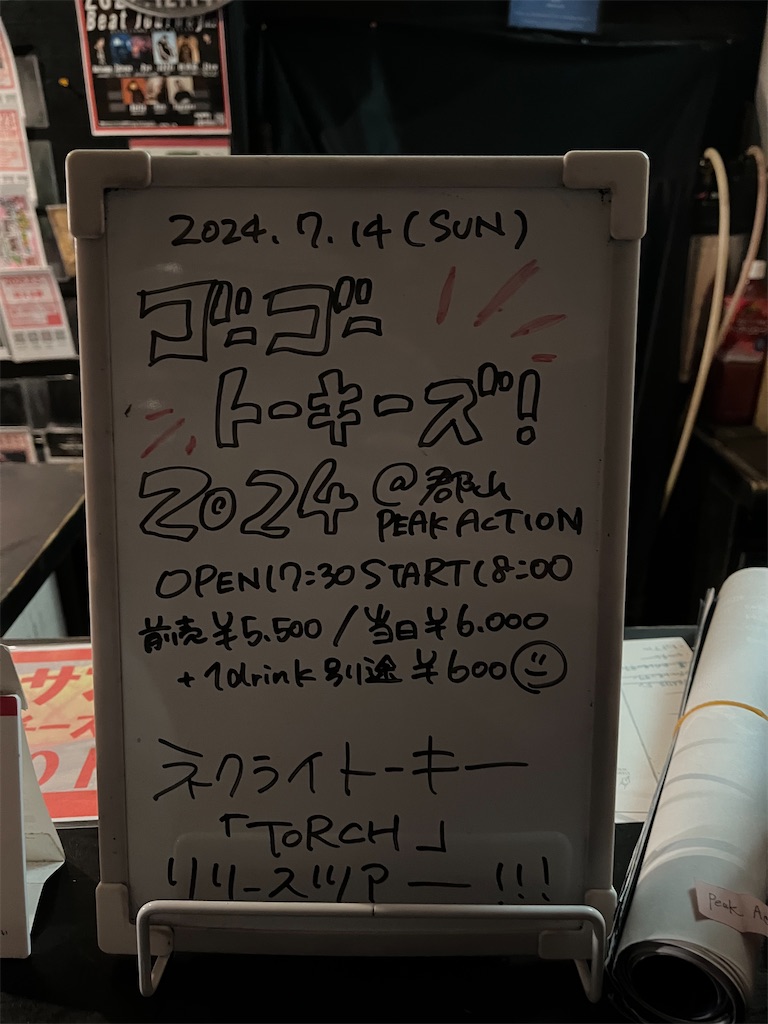 Beat Journey
2024.7.14(SUN)
ゴーゴー
トーキーズ!
2024 @郡山
PEAK ACTION
OPEN17:30 START18:00
前売¥5.500/当日¥6.000
+1drink別途¥600
ネクライトーキー
「TORCH」
リリースツアー!!!
Peak A